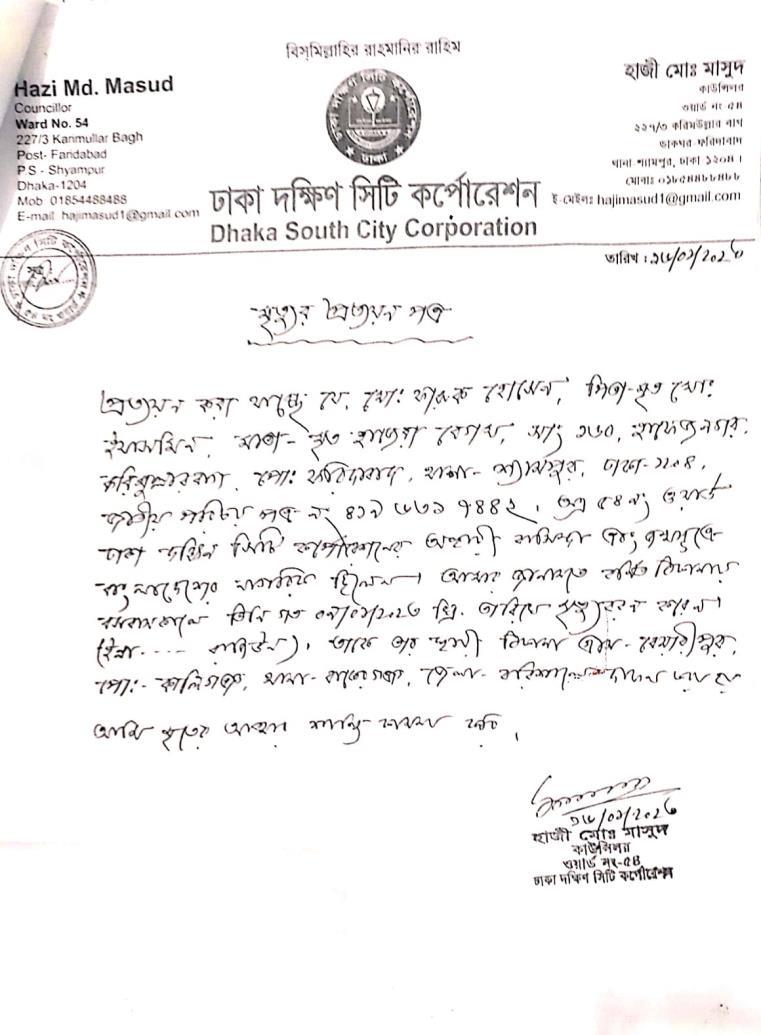 বিসমিল্লাহির রাহমানির রাহিম
Hazi Md. Masud
Councillor
Ward No. 54
227/3 Karimullar Bagh
Post- Faridabad
P S - Shyampur
Dhaka-1204
Mob 01854488488
E-mail hajimasud1@gmail.com
হাজী মোঃ মাসুদ
কাউন্সিলর
ওয়ার্ড নং ৫৪
২২৭/৩ করিমউল্লার বাগ
ডাকঘর ফরিদাবাদ
থানা শ্যামপুর, ঢাকা ১২০৪।
মোবাঃ ০১৮৫৪৪৮৮৪৮৮
ই-মেইলঃ hajimasud1@gmail.com
ঢাকা দক্ষিণ সিটি কর্পোরেশন
Dhaka South City Corporation
তারিখ :
মৃত্যুর প্রত্যয়ন পত্র
প্রত্যয়ন করা যাচ্ছে যে, মো: ফারুক হোসেন, পিতা-মৃত মো:
মাতা- মৃত বেগম, সাং ১৬০,
পো: ফরিদাবাদ, থানা- শ্যামপুর, ঢাকা-
জাতীয় পরিচয় পত্র নং অত্র ৫৪নং ওয়ার্ড
ঢাকা দক্ষিণ সিটি কর্পোরেশনের অস্থায়ী বাসিন্দা এবং জন্মসূত্রে
বাংলাদেশের নাগরিক ছিলেন। আমার জানামতে বর্ণিত ঠিকানায়
বসবাসকালে তিনি গত খ্রি. তারিখে মৃত্যুবরণ করেন।
(ইন্না- .... রাজিউন)। তাকে তার স্থায়ী ঠিকানা গ্রাম-
পো:- কালিগঞ্জ, থানা- জেলা- বরিশালে দাফন করা হয়
আমি মৃতের আত্মার শান্তি কামনা করি।
হাজী মোঃ মাসুদ
কাউন্সিলর
ওয়ার্ড নং-৫৪
ঢাকা দক্ষিণ সিটি কর্পোরেশন